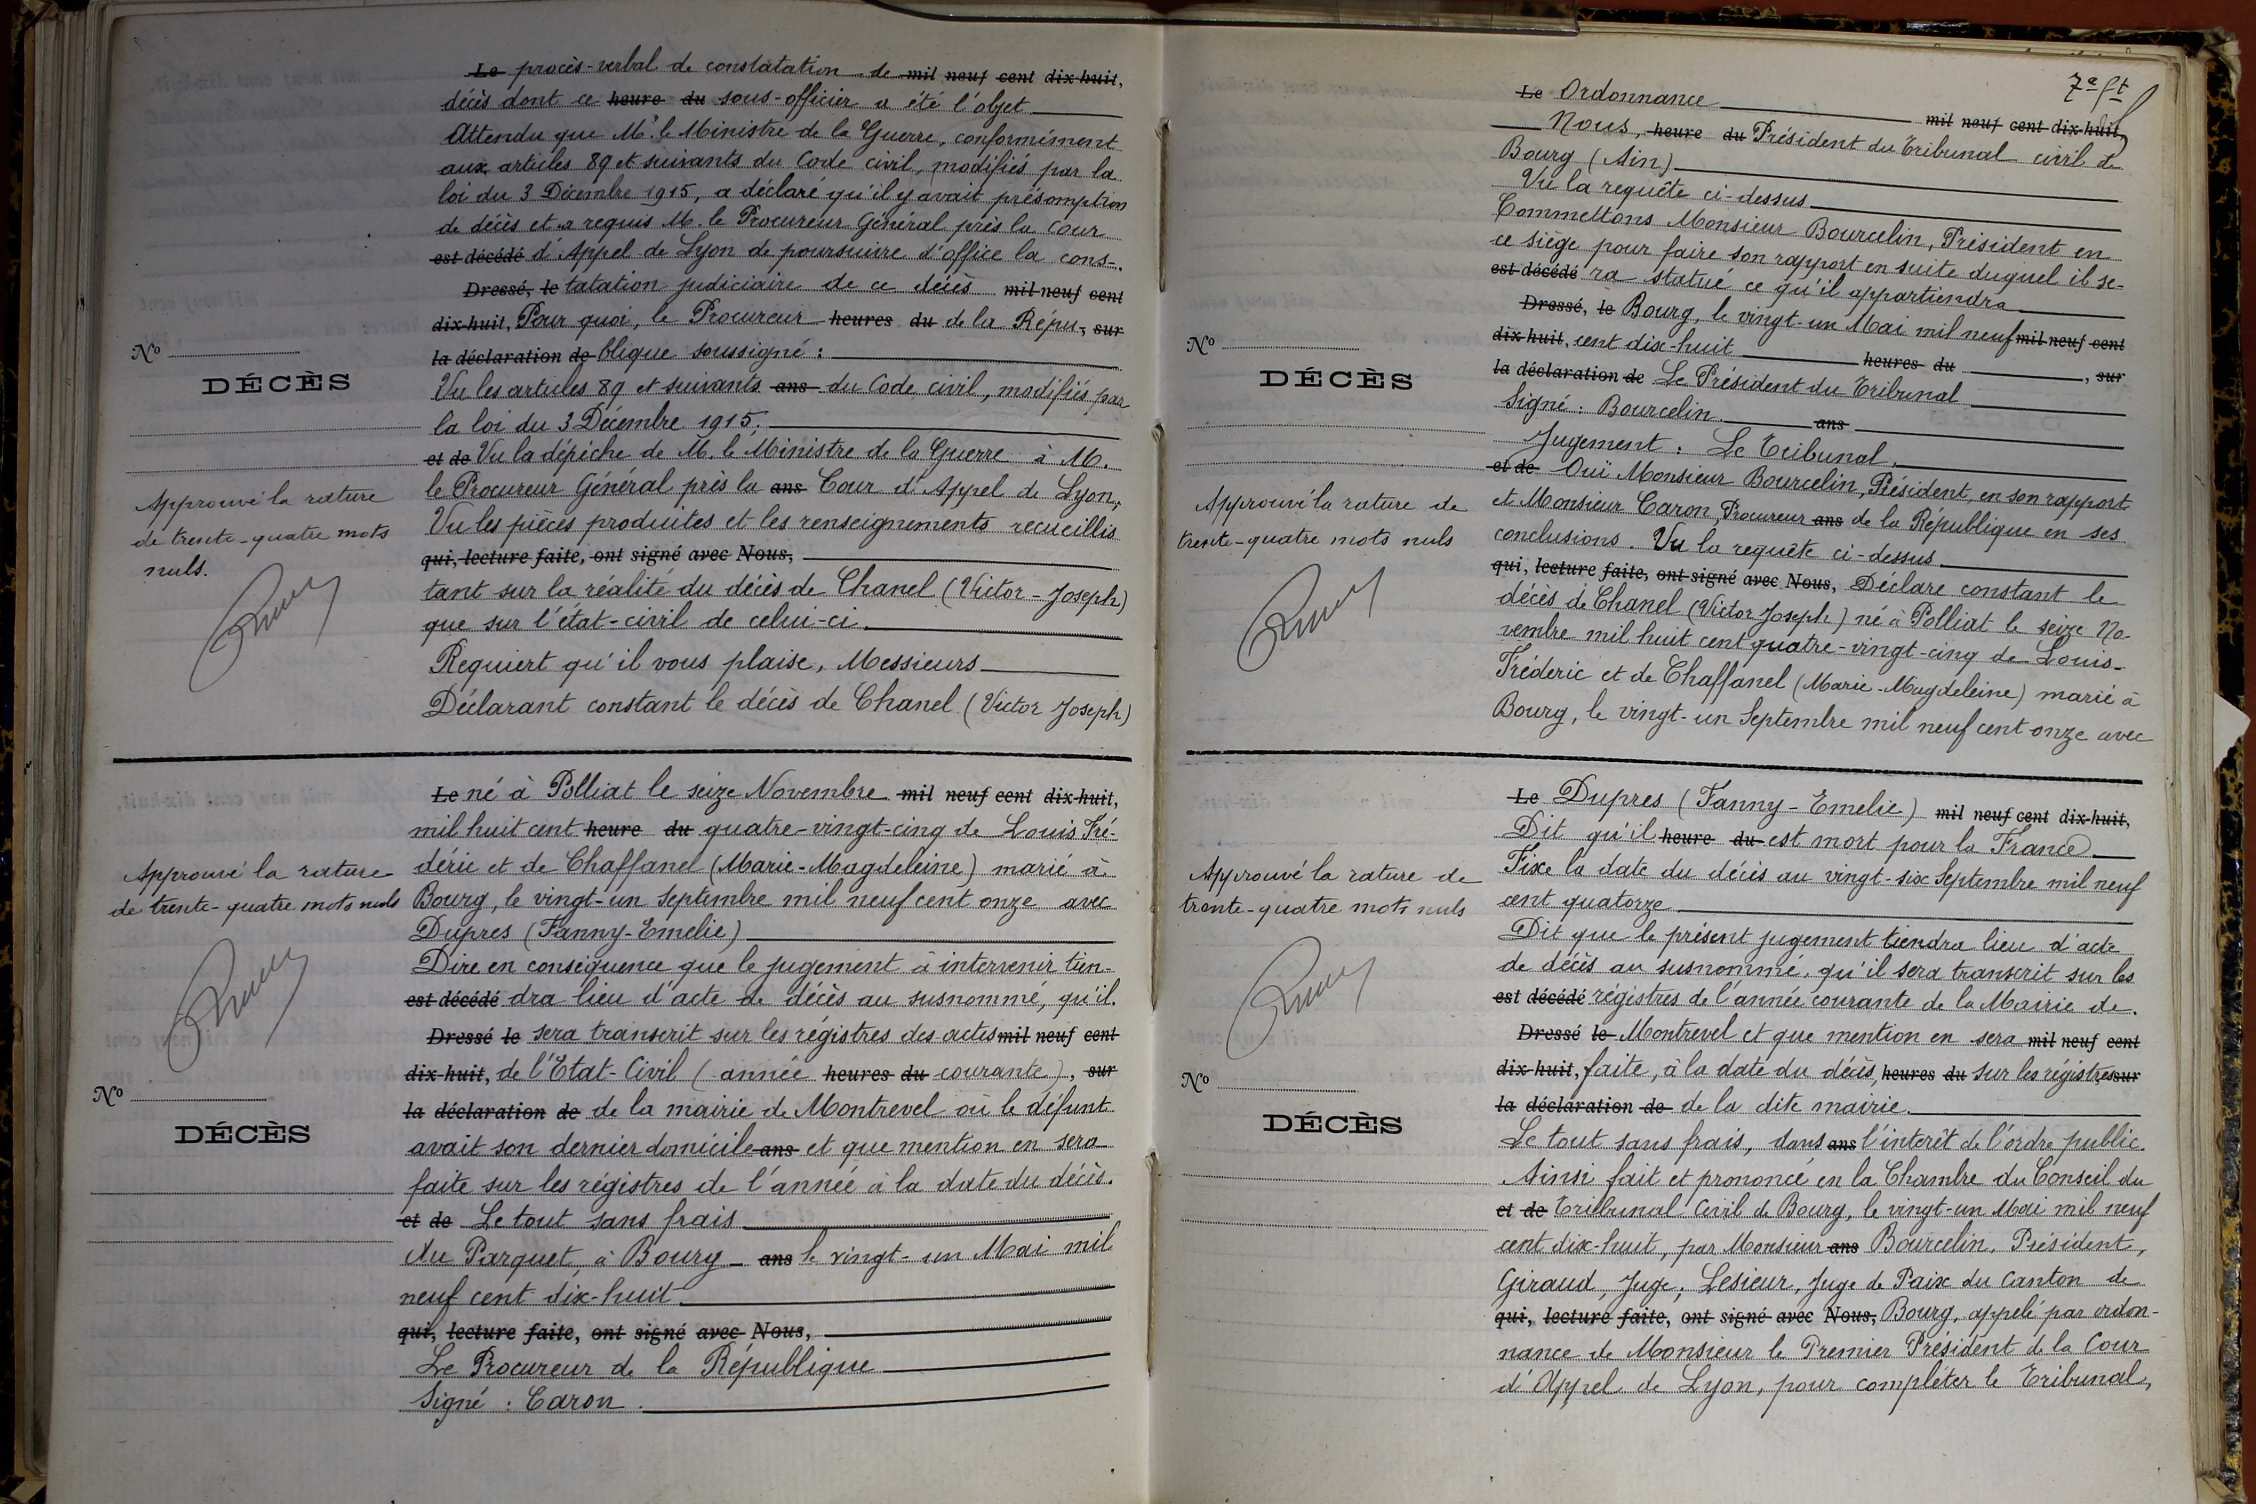 Le procès-verbal de constatation de mil neuf cent dix-huit,
décès dont ce heure du sous-officier a été l'objet
Attendu que Mr. le Ministre de la Guerre, conformément
aux articles 89 et suivants du Code civil, modifiés par la
loi du 3 Décembre 1915, a déclaré qu'il y avait présomption
de décès et a requis M. le Procureur Général près la Cour
est décédé d'Appel de Lyon de poursuivre d'office la cons-
Dressé, le tatation judiciaire de ce décès mil neuf cent
dix-huit, Pour quoi, le Procureur heures du de la Répu-, sur
la déclaration de blique soussigné :
Vu les articles 89 et suivants ans du Code civil, modifiés par
la loi du 3 Décembre 1915;
et de Vu la dépêche de M. le Ministre de la Guerre à M.
le Procureur Général près la ans Cour d'Appel de Lyon,
Vu les pièces produites et les renseignements recueillis
qui, lecture faite, ont signé avec Nous,
tant sur la réalité du décès de Chanel (Victor-Joseph)
que sur l'état-civil de celui-ci.
Requiert qu'il vous plaise, Messieurs
Déclarant constant le décès de Chanel (Victor Joseph)
No
DÉCÈS
Approuvé la rature
de trente-quatre mots
nuls.
Le né à Polliat le seize Novembre mil neuf cent dix-huit,
mil huit cent heure du quatre-vingt-cinq de Louis Fré-
déric et de Chaffanel (Marie-Magdeleine) marié à
Bourg, le vingt-un Septembre mil neuf cent onze avec
Dupres (Fanny-Emelie)
Dire en conséquence que le jugement à intervenir tien-
est décédé dra lieu d'acte de décès au susnommé, qu'il
Dressé le sera transcrit sur les régistres des actes mil neuf cent
dix-huit, de l'Etat-Civil (année heures du courante), sur
la déclaration de de la mairie de Montrevel où le défunt
avait son dernier domicile ans et que mention en sera
faite sur les régistres de l'année à la date du décès.
et de Le tout sans frais
Au Parquet, à Bourg - ans le vingt-un Mai mil
neuf cent dix-huit
qui, lecture faite, ont signé avec Nous,
Le Procureur de la République
Signé : Caron.
Approuvé la rature
de trente-quatre mots nuls
No
DÉCÈS
7e ft
Le Ordonnance mil neuf cent dix-huit,
Nous, heure du Président du Tribunal civil de
Bourg (Ain)
Vu la requête ci-dessus
Commettons Monsieur Bourcelin, Président en
ce siège pour faire son rapport en suite duquel il se-
est décédé ra statué ce qu'il appartiendra
Dressé, le Bourg, le vingt-un Mai mil neuf mil neuf cent
dix-huit, cent dix-huit heures du , sur
la déclaration de Le Président du Tribunal
Signé : Bourcelin ans
Jugement : Le Tribunal,
et de Ouï Monsieur Bourcelin, Président, en son rapport
et Monsieur Caron, Procureur ans de la République en ses
conclusions. Vu la requête ci-dessus
qui, lecture faite, ont signé avec Nous, Déclare constant le
décès de Chanel (Victor Joseph) né à Polliat le seize No-
vembre mil huit cent quatre-vingt-cinq de Louis-
Fréderic et de Chaffanel (Marie-Magdeleine) marié à
Bourg, le vingt-un Septembre mil neuf cent onze avec
No
DÉCÈS
Approuvé la rature de
trente-quatre mots nuls
Le Dupres (Fanny-Emelie) mil neuf cent dix-huit,
Dit qu'il heure du est mort pour la France
Fixe la date du décès au vingt-six Septembre mil neuf
cent quatorze
Dit que le présent jugement tiendra lieu d'acte
de décès au susnommé, qu'il sera transcrit sur les
est décédé régistres de l'année courante de la Mairie de
Dressé le Montrevel et que mention en sera mil neuf cent
dix-huit, faite, à la date du décès, heures du sur les régistres sur
la déclaration de de la dite mairie.
Le tout sans frais, dans ans l'interêt de l'ordre public.
Ainsi fait et prononcé en la Chambre du Conseil du
et de Tribunal Civil de Bourg, le vingt-un Mai mil neuf
cent dix-huit, par Monsieur ans Bourcelin, Président,
Giraud, Juge, Lesieur, Juge de Paix du Canton de
qui, lecture faite, ont signé avec Nous, Bourg, appelé par ordon-
nance de Monsieur le Premier Président de la Cour
d'Appel de Lyon, pour compléter le Tribunal,
Approuvé la rature de
trente-quatre mots nuls
No
DÉCÈS